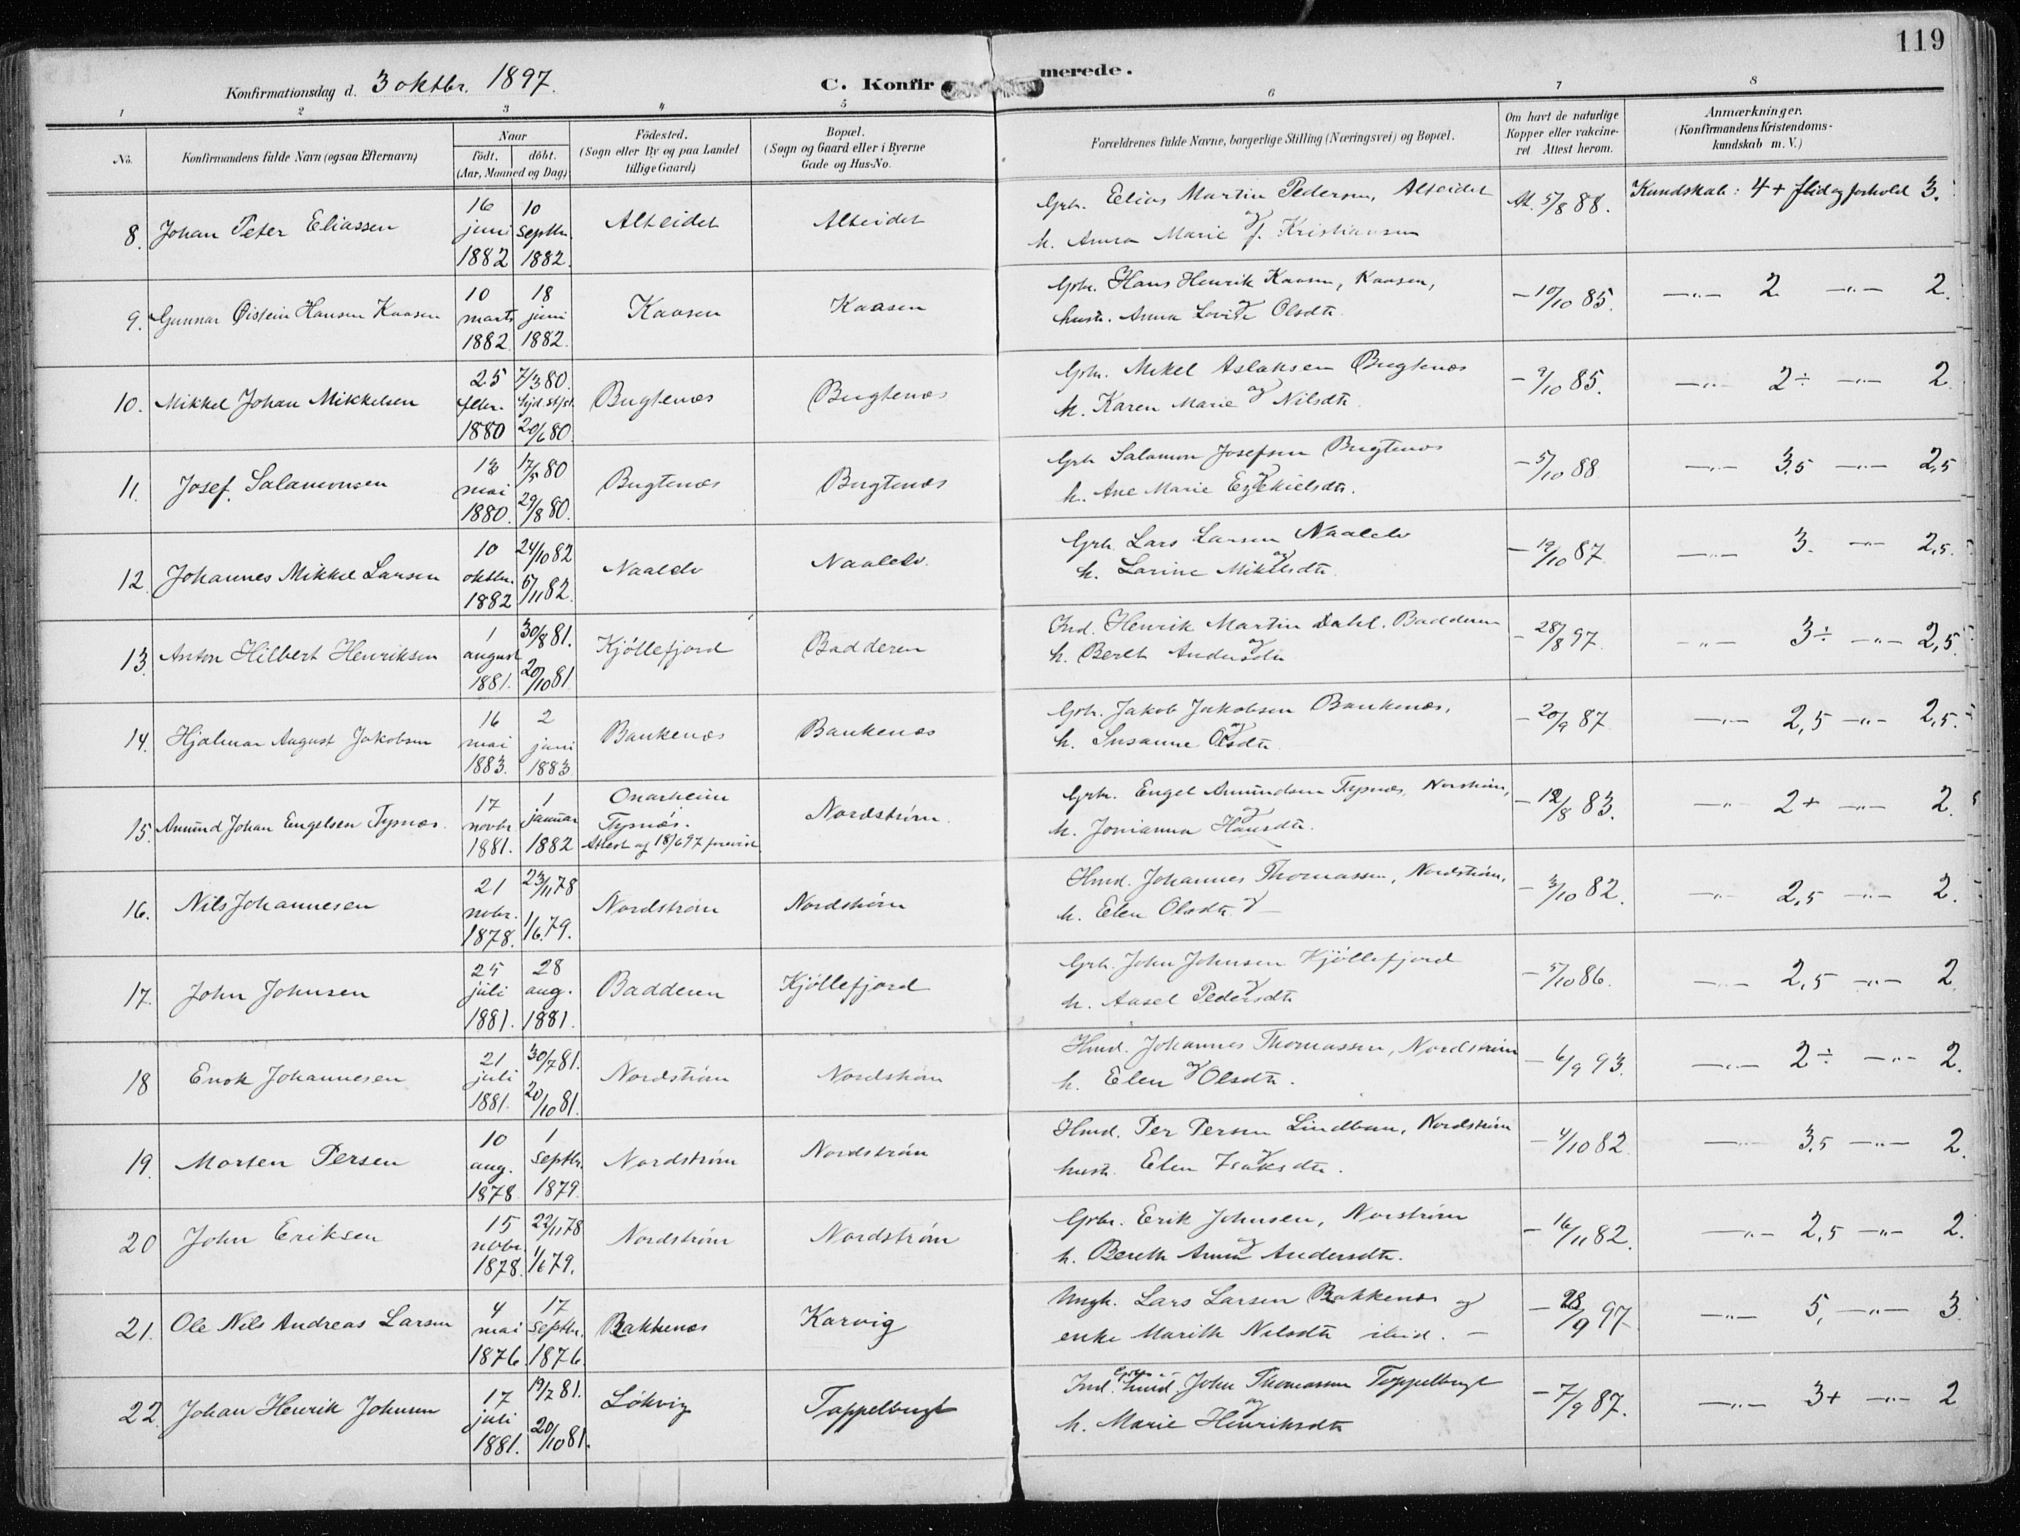 119
Konfirmationsdag d. 3 oktbr. 1897.
C. Konfirmerede.
1 2 3 4 5 6 7 8
No. Konfirmandens fulde Navn (ogsaa Efternavn)
Naar født. døbt. (Aar, Maaned og Dag)
Födested. (Sogn eller By og paa Landet tillige Gaard)
Bopæl. (Sogn og Gaard eller i Byerne Gade og Hus-No.
Forældrenes fulde Navne, borgerlige Stilling (Næringsvei) og Bopæl.
Om havt de naturlige Kopper eller vakcineret. Attest herom.
Anmærkninger. (Konfirmandens Kristendomskundskab m. V.)
8. Johan Peter Eliassen 16 juni 1882 10 septbr. 1882. Alteidet Alteidet Grb. Elias Martin Pedersen, Alteidet og h. Anna Marie f. Kristiansen At. 5/8 88. Kundskab: 4+ flid og forhold 3.
9. Gunnar Øistein Hansen Kaasen 10 marts 1882 18 juni 1882. Kaasen Kaasen Grbr. Hans Henrik Kaasen, Kaasen, og hustr. Anna Lovise Olsdtr. - 10/10 85. -"- 2 -"- 2.
10. Mikkel Johan Mikkelsen 25 febr. 1880 7/3 80. hjd. st/st. 20/6 80. Bugtenæs Bugtenæs Grbr. Mikel Aslaksen Bugtenæs og h. Karen Marie Nilsdtr. - 9/10 85. -"- 2÷ -"- 2
11. Josef. Salamonsen 13 mai 1880. 17/5 80 29/8 80. Bugtenæs Bugtenæs Grb. Salamon Josefsen Bugtenæs og h. Ane Marie Ezekielsdtr. - 5/10 88 -"- 3,5 -"- 2,5
12. Johannes Mikkel Larsen 10 oktbr. 1882 24/10 82 5/11 82. Naaelv Naaelv. Grb. Lars Larsen Naaelv og h. Larine Mikelsdtr. - 19/10 87. -"- 3. -"- 2,5.
13. Anton Hilbert Henriksen 1 august 1881. 30/8 81. 20/10 81 Kjöllefjord Badderen Ind. Henrik Martin Dahl. Badderen og h. Bereth Andersdtr - 28/8 97. -"- 3÷ -"- 2,5.
14. Hjalmar August Jakobsen 16 mai 1883. 2 juni 1883 Bankenæs Bankenæs Grb. Jakob Jakobsen Bankenæs, og h. Susanne Olsdtr. - 20/9 87. -"- 2,5 -"- 2,5.
15. Amund Johan Engelsen Tysnæs. 17 novbr. 1881. 1 januar 1882 Onarheim Tysnæs. Attest af 18/6 97 forevist Nordstrøm. Grb. Engel Amundsen Tysnæs, Norstrøm, og h. Jonianna Hansdtr. - 12/8 83. -"- 2+ -"- 2.
16. Nils Johannesen 21 nobr. 1878. 23/11 78 1/6 79. Nordstrøm Nordstrøm Hmd. Johannes Thomassen, Nordstrøm, h. Elen Olsdtr. - 3/10 82. -"- 2,5 -"- 2.
17. John Johnsen 25 juli 1881. 28 aug. 1881. Badderen Kjöllefjord Grb. John Johnsen Kjöllefjord og h. Aasel Pedersdtr - 5/10 86. -"- 2,5 -"- 2
18 Enok Johannesen 21 juli 1881. 30/7 81. 20/10 81. Nordstrøm Nordstrøm Hmd. Johannes Thomassen, Nordstrøm og h. Elen Olsdtr. - 6/9 93. -"- 2÷ -"- 2.
19. Morten Persen 10 aug. 1878 1 septbr. 1879. Nordstrøm Nordstrøm Hmd. Per Persen Lindbom, Nordstrøm og hustr. Elen Isaksdtr. - 4/10 82 -"- 3,5 -"- 2.
20 John Eriksen 15 nobr. 1878. 22/11 78 1/6 79. Nordstrøm Nordstrøm Grbr. Erik Johnsen, Norstrøm og h. Bereth Anna Andersdtr. - 16/11 82. -"- 2,5 -"- 2.
21. Ole Nils Andreas Larsen 4 mai 1876 17 septbr. 1876. Bakkenæs Karvig Ungk. Lars Larsen Bakkenæs og enke Marith Nilsdtr ibid. - - 28/9 97. -"- 5, -"- 3
22. Johan Henrik Johnsen 17 juli 1881. 19/7 81. 20/10 81. Lökvig Toppelbugt Ind. hmd. John Thomassen Toppelbugt og h. Marie Henriksdtr - 7/9 87. -"- 3+ -"- 2